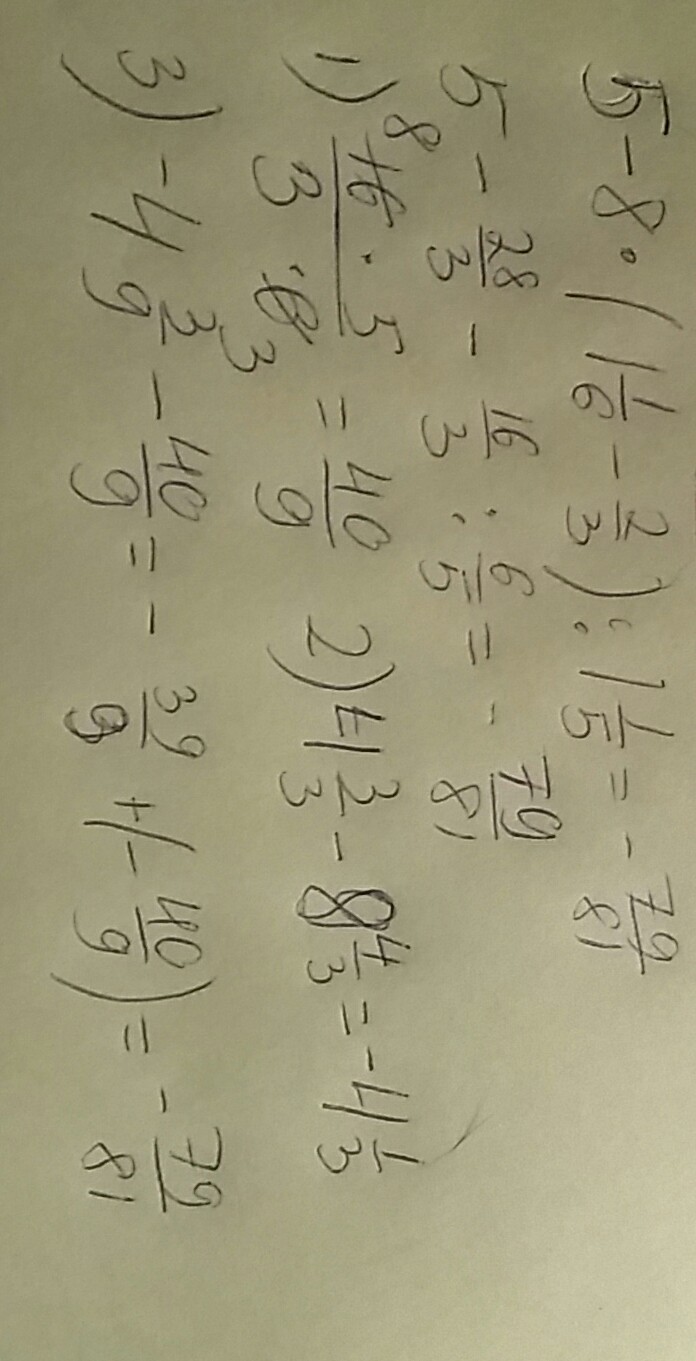 5 - 8 · (1 1/6 - 2/3) : 1 1/5 = - 79/81
5 - 28/3 - 16/3 : 6/5 = - 79/81
1) 8 16 · 5 / 3 · 6 3 = 40/9 2) 4 3/3 - 8 4/3 = - 4 1/3
3) - 4 3/9 - 40/9 = - 39/9 + (- 40/9) = - 79/81